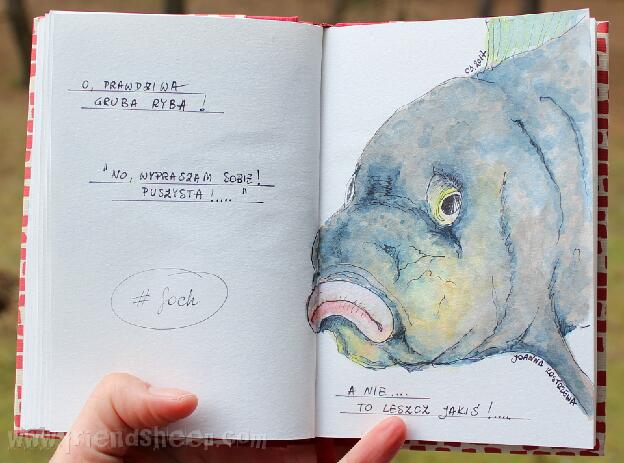 O, PRAWDZIWA
GRUBA RYBA !
"NO, WYPRASZAM SOBIE!
PUSZYSTA !....."
# foch
03.2017
JOANNA
A NIE....
TO LESZCZ JAKIŚ !....
www.friendsheep.com